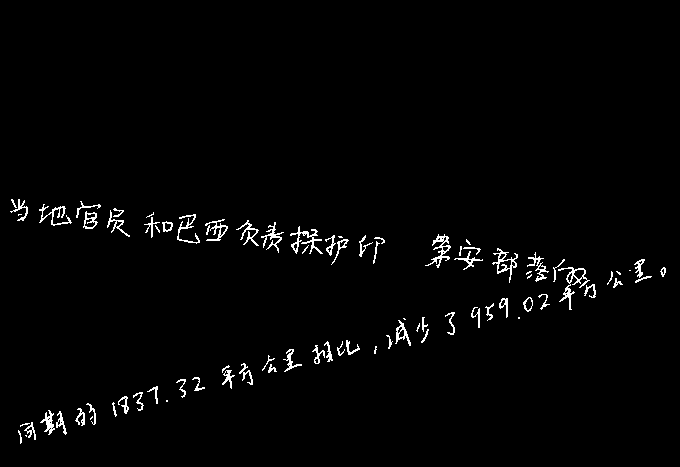 当地官员和巴西负责保护印 第安部落
同期的1837.32平方公里相比,减少了959.02平方公里。